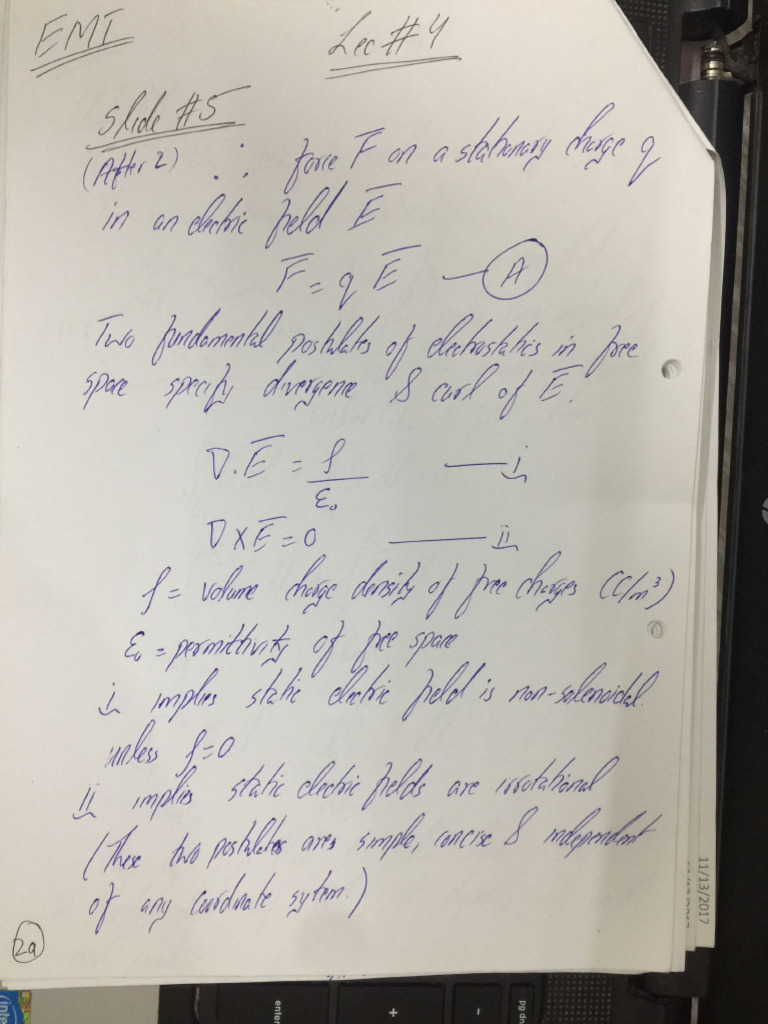 EMI Lec #4
Slide #5
(After 2) ∴ force F̅ on a stationary charge q
in an electric field E̅
F̅ = q E̅ — A
Two fundamental postulates of electrostatics in free
space specify divergence & curl of E̅.
∇.E̅ = ρ/ε₀ — i
∇×E̅ = 0 — ii
ρ = volume charge density of free charges (C/m³)
ε₀ = permittivity of free space
i implies static electric field is non-solenoidal
unless ρ=0
ii implies static electric fields are irrotational
(These two postulates are simple, concise & independent
of any coordinate sytem.)
2a
11/13/2017
enter
+
-
pg dn